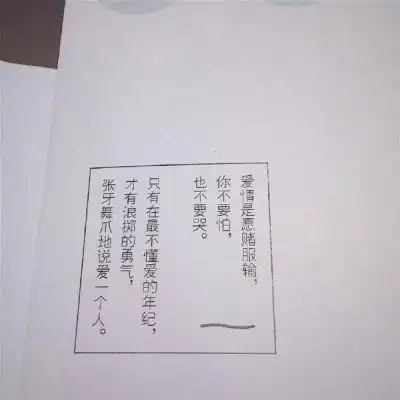 爱情是愿赌服输,
你不要怕,
也不要哭。
只有在最不懂爱的年纪,
才有浪掷的勇气,
张牙舞爪地说爱一个人。